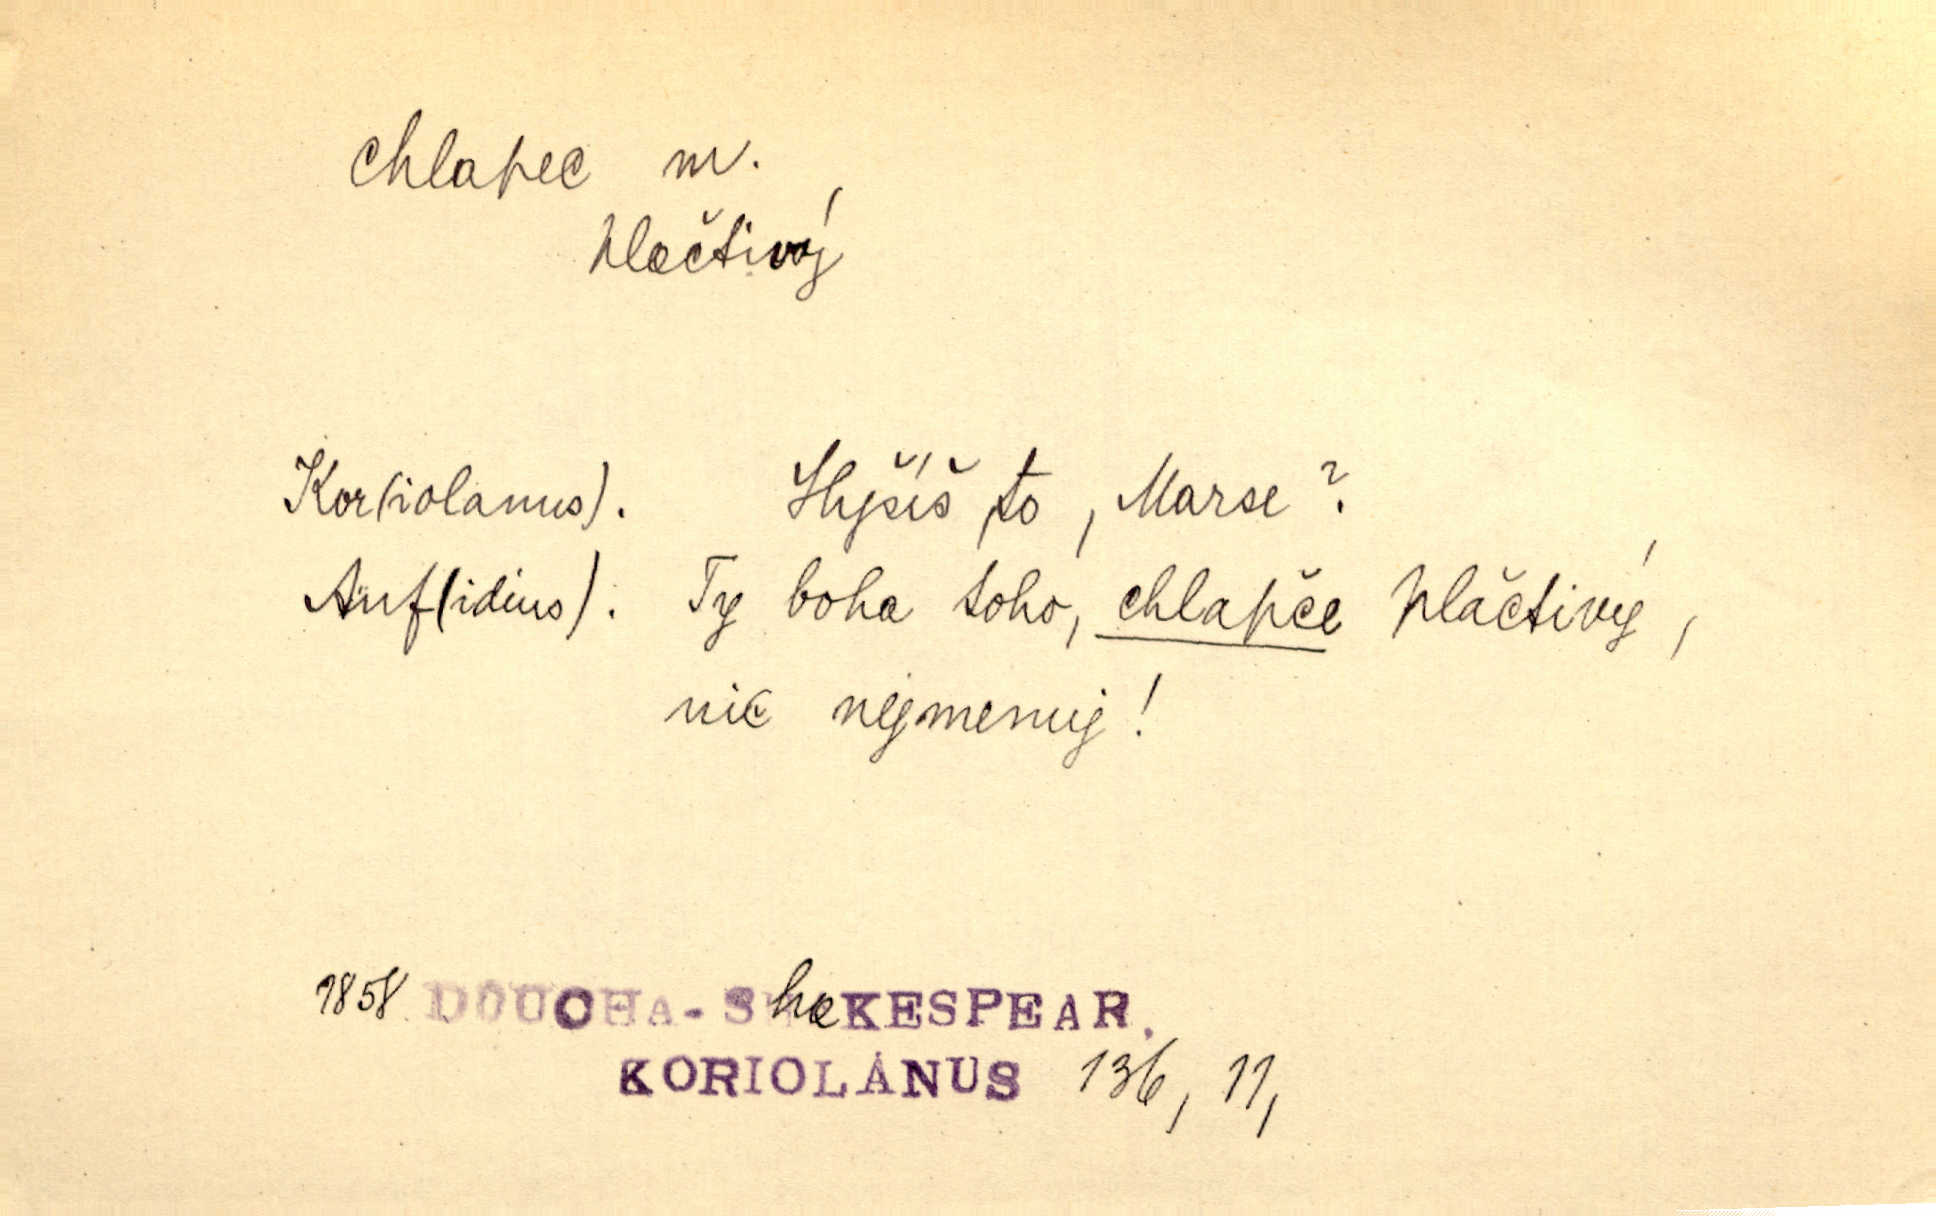 chlapec m.
plačtivý
Kor(iolanus). Slyšíš to, Marse?
Auf(idius). Ty boha toho, chlapče plačtivý,
nic nejmenuj!
1858 DOUCHA-ShaKESPEAR.
KORIOLÁNUS 136, 11,